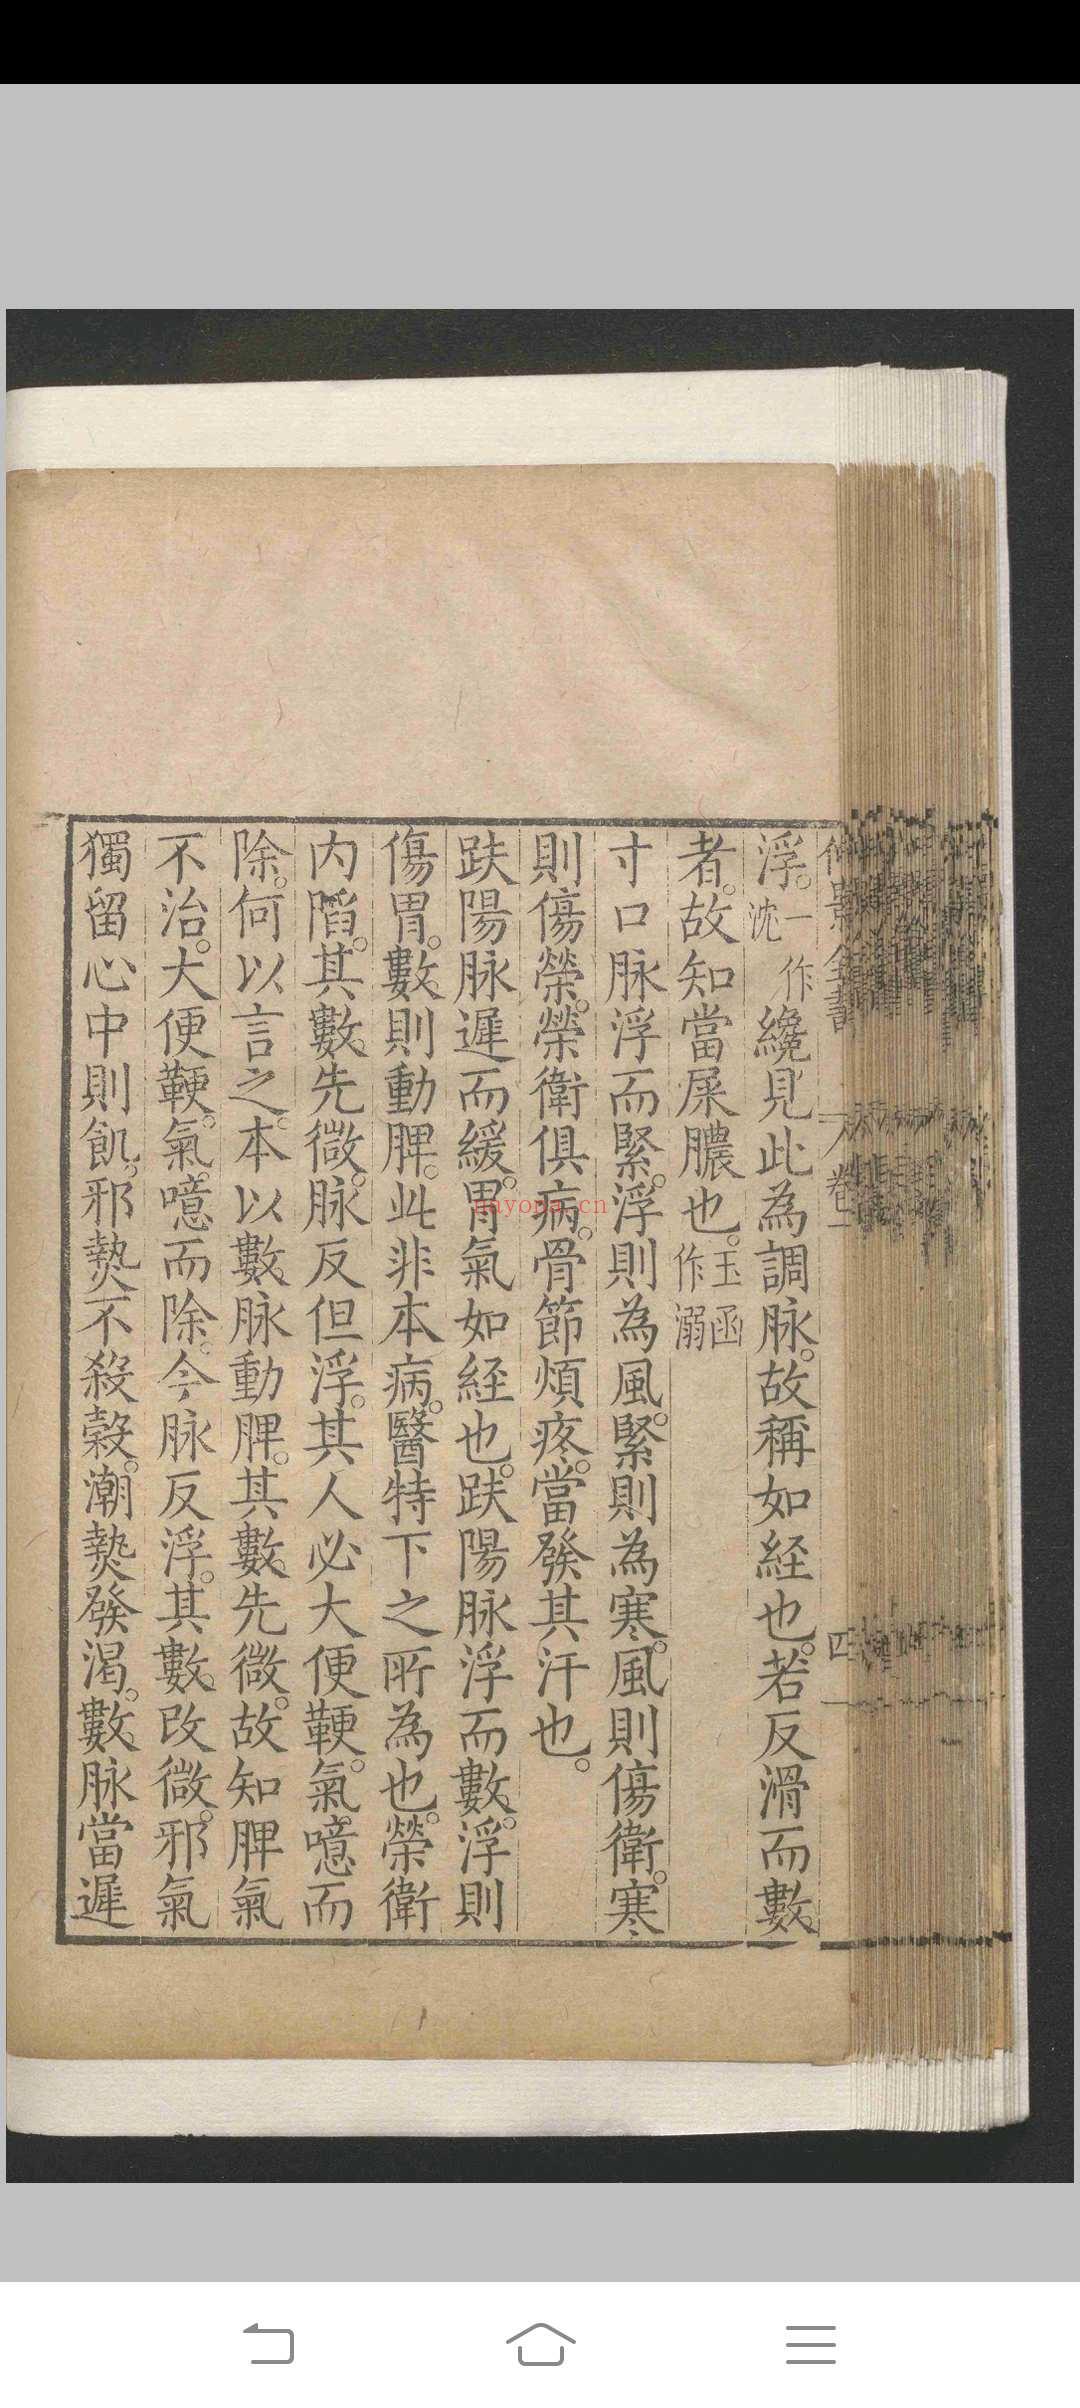 浮。一作沈纔見此為調脉。故稱如経也。若反滑而數
者。故知當屎膿也。玉函作溺
寸口脉浮而緊。浮則為風。緊則為寒。風則傷衛。寒
則傷榮。榮衛俱病。骨節煩疼。當發其汗也。
趺陽脉遲而緩。胃氣如経也。趺陽脉浮而數。浮則
傷胃。數則動脾。此非本病。醫特下之所為也。榮衛
内陷。其數先微。脉反但浮。其人必大便鞕。氣噫而
除。何以言之。本以數脉動脾。其數先微。故知脾氣
不治。大便鞕。氣噫而除。今脉反浮。其數改微。邪氣
獨留心中則飢。邪熱不殺穀。潮熱發渴。數脉當遲
nayona.cn